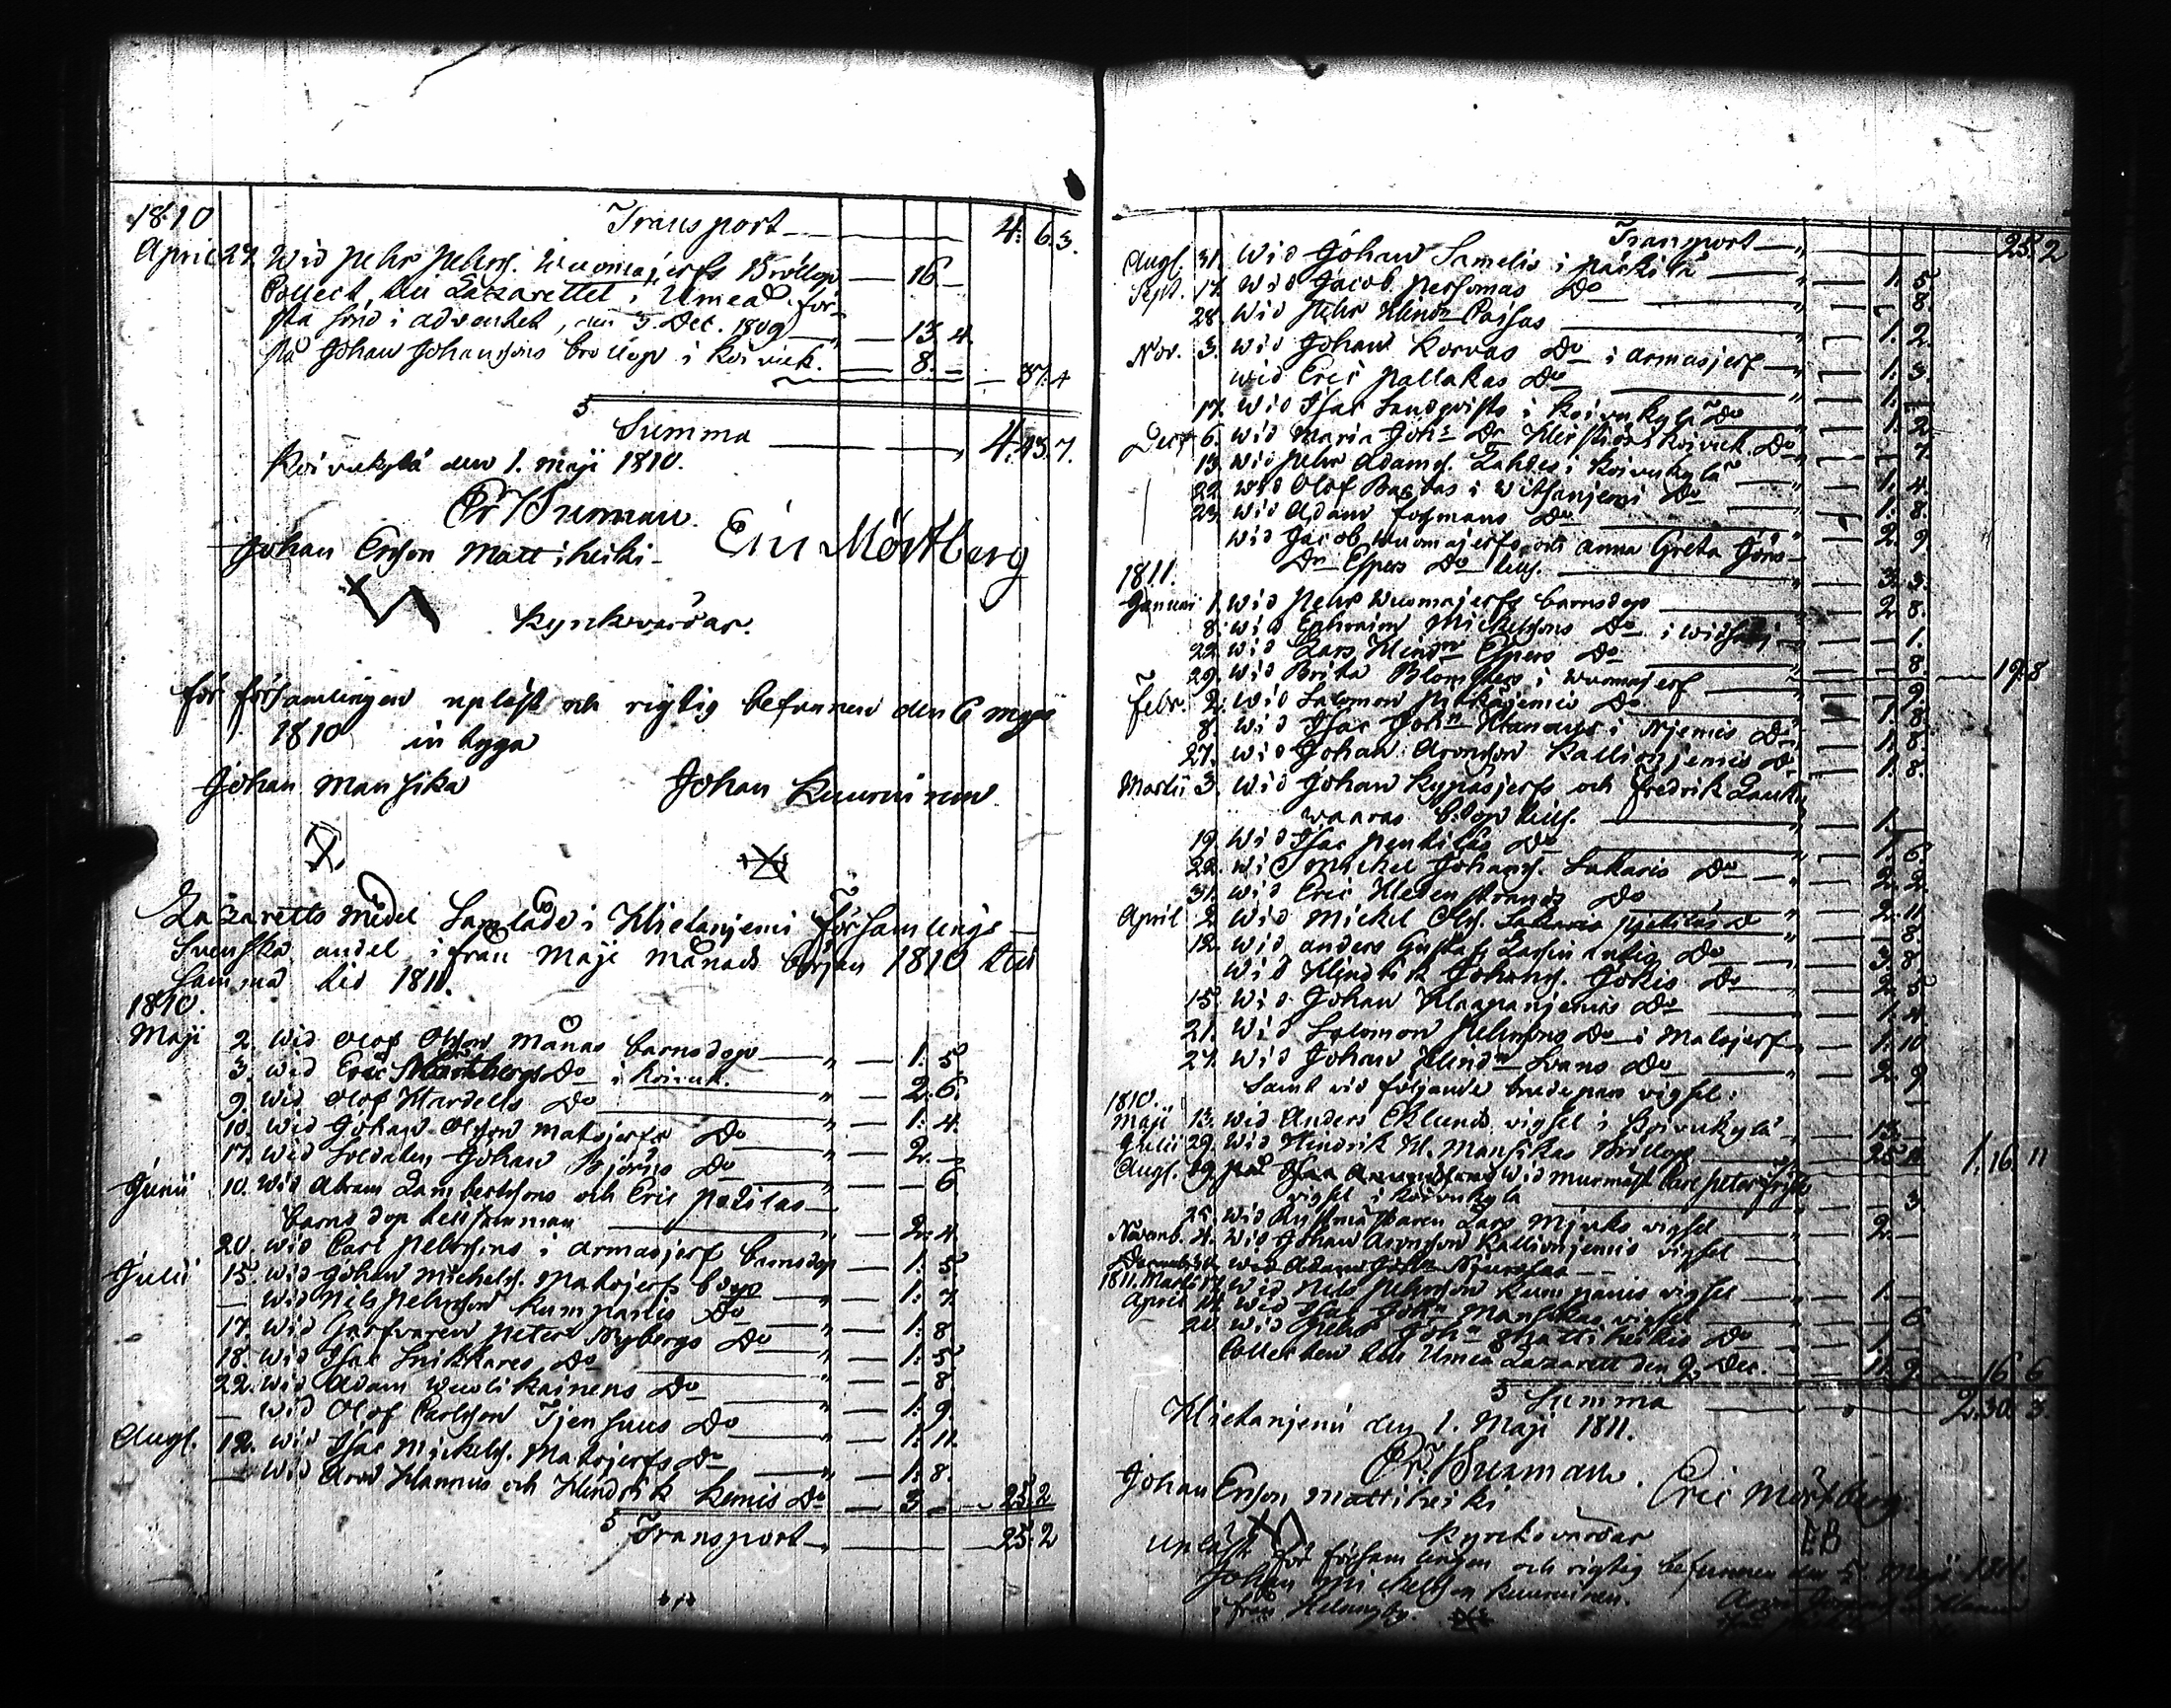 1810 Transport — 4. 6. 3.
April 27. Wid Pehr Pehrs. Wuomajerfs Bröllop — 16 —
Collect till Lazarettet i Umeå för-
sta sönd. i adventet, den 3. Dec. 1809 — 13. 4.
på Johan Johanssons bröllop i Koivuk. — 8. — — 37. 4
Summa — 4. 43. 7.
Koivukylä den 1. Maji 1810.
Er. Burman.
Johan Ersson Mattiheiki Eric Mörtberg
Kyrkovärdar.
för församlingen upläst och rigtig befunnen den 6 maji
1810 intyga
Johan Mansika Johan Kuuruinen
Lazaretts Medel Samlade i Hietaniemi församlings
Svenska andel ifrån Maji Månads början 1810 till
samma tid 1811.
1810.
Maji 2. Wid Olof Olsson Månas barnsdop — 1. 5
3. Wid Eric Mörtbergs Do i Koivuk. — 2. 6.
9. Wid Olof Hardells Do — 1. 4.
10. Wid Johan Olsson Matojerfs Do — 2. —
17. Wid Soldaten Johan Björns Do — 6.
Junii 10. Wid Abram Lambertssons och Eric
barnsdop tillsamman — 2. 4
20. Wid Carl Pehrssons i Armasjerf barnsdop — 1. 5.
Julii 15. Wid Johan Michels. Matojerfs b:dop — 1. 7.
— Wid Nils Pehrsson Kumpanis Do — 1. 8
17. Wid Garfvaren Peter Nybergs Do — 1. 5
18. Wid Isac Snikkares Do — 8.
22. Wid Adam Wuolikainens Do — 1. 9.
— Wid Olof Carlsson Tjenhuus Do — 1. 11.
Augt. 12. Wid Isac Mickels. Matojerfs Do — 1. 8.
— Wid Aron Hannus och Hendrik Kemis Do — 3 — — 25. 2
Transport — 25. 2
Transport — 25. 2
Augt. 31. Wid Johan Samelis i Päckilä — 1. 5.
Sept. 17. Wid Jacob Do — 8.
28. Wid Pehr Hindr. Paisas — 1. 2.
Nov. 3. Wid Johan Korvas Do i Armasjerf — 1. 3.
Wid Eric Pallakas Do — 1. —
17. Wid Isac Landqvists i Koivukylä Do — 1. 2.
Decr. 6. Wid Maria Johs. Dr. i Koivuk. Do — 7.
13. Wid Pehr Adams. Lahdes i Koivukylä — 1. 4.
22. Wid Olof i Witsanjemi Do — 1. 8.
23. Wid Adam Do — 2. 9
Wid Jacob Wuomajerfs och Anna Greta Jöns-
Dr. Espers Do tills. — 3. 3.
1811.
Januari 1. Wid Pehr Wuomajerfs barnsdop — 2. 8.
8. Wid Ephraim Mickelssons Do — 1.
22. Wid Lars Hindr. Espers Do — 8. — 19. 8
29. Wid Brita Blomsters i Wuomajerf — 9.
Febr. 2. Wid Salomon Pitkäjemis Do — 1. 8.
8. Wid Isac Johs. Do — 1. 8.
27. Wid Johan Aronsson Kallionjemis Do — 1. 8.
Martii 3. Wid Johan Kypasjerfs och Fredrik Lauku
waaras b:dop tills. — 1. —
19. Wid Isac Penttilas Do — 1. 6.
22. Wid Mickel Johans. Lakaris Do — 2. 2.
31. Wid Eric Hedenstrands Do — 2. 11
April 2. Wid Mickel Ols. — 8.
12. Wid Anders Gustaf Do — 3. 8
Wid Hindrik Johans. Jokis Do — 2. 5
15. Wid Johan Haapanjemis Do — 1. 4.
21. Wid Salomon Pehrssons Do i Matojerf — 1. 10
27. Wid Johan Hindr. Svans Do — 2. 9
Samt vid följande brudepars vigsel:
1810.
Maji 13. Wid Anders Eklunds vigsel i Koivukylä — 13. —
Julii 29. Wid Hendrik H. Mansikas Bröllop — 1. 16. 11
Augt. 19. Wid Murmäst. Carl Peter
vigsel i Koivukylä — 3.
25. Wid Lars vigsel — 2. —
Novemb. 4. Wid Johan Aronsson Kallionjemis vigsel
1811. Martii 17. Wid Nils Pehrsson Kumpanis vigsel — 1. —
April 14. Wid Isac Johs. Mansikas vigsel — 6.
21. Wid Pehr Johs. Mattiheikis Do — 1. —
Collecten till Umeå Lazarett den 9. Dec. — 11. 9. — 16. 6
Summa — 2. 30. 3.
Hietanjemi den 1. Maji 1811.
Er. Burman.
Johan Ersson Mattiheiki Eric Mörtberg.
Kyrkovärdar EB
Upläst för församlingen och rigtig befunnen den 5. Maji 1811.
Johan Mickelsson Kuuruinen.
ifrån Helsingby.